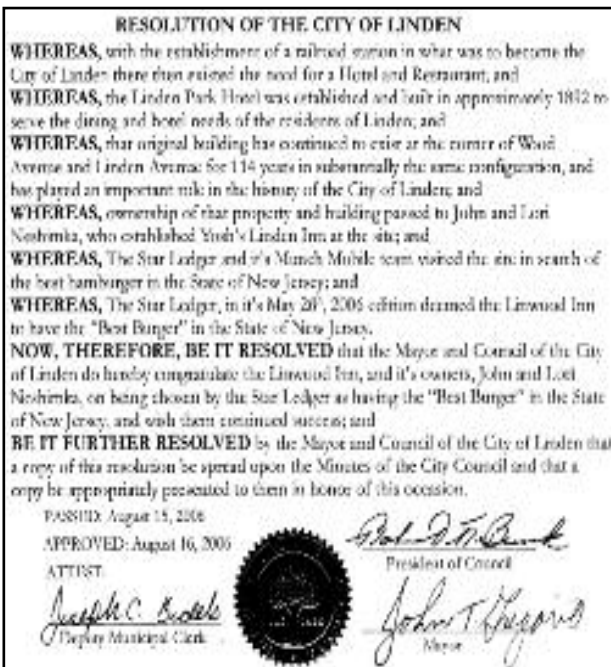 RESOLUTION OF THE CITY OF LINDEN
WHEREAS, with the establishment of a railroad station in what was to become the
City of Linden there then existed the need for a Hotel and Restaurant; and
WHEREAS, the Linden Park Hotel was established and built in approximately 1892 to
serve the dining and hotel needs of the residents of Linden; and
WHEREAS, that original building has continued to exist at the corner of Wood
Avenue and Linden Avenue for 114 years in substantially the same configuration, and
has played an important role in the history of the City of Linden; and
WHEREAS, ownership of that property and building passed to John and Lori
who established Linden Inn at the site; and
WHEREAS, The Star Ledger and it's Munch Mobile team visited the site in search of
the best hamburger in the State of New Jersey; and
WHEREAS, The Star Ledger, in it's May 2006 edition deemed the Linwood Inn
to have the "Best Burger" in the State of New Jersey.
NOW, THEREFORE, BE IT RESOLVED that the Mayor and Council of the City
of Linden do hereby congratulate the Linwood Inn, and it's owners, John and Lori
on being chosen by the Star Ledger as having the "Best Burger" in the State
of New Jersey, and wish them continued success; and
BE IT FURTHER RESOLVED by the Mayor and Council of the City of Linden that
a copy of this resolution be spread upon the Minutes of the City Council and that a
copy be appropriately presented to them in honor of this occasion.
PASSED: August 15, 2006
APPROVED: August 16, 2006
President of Council
ATTEST:
Joseph C.
John T Gregorio
Deputy Municipal Clerk
Mayor